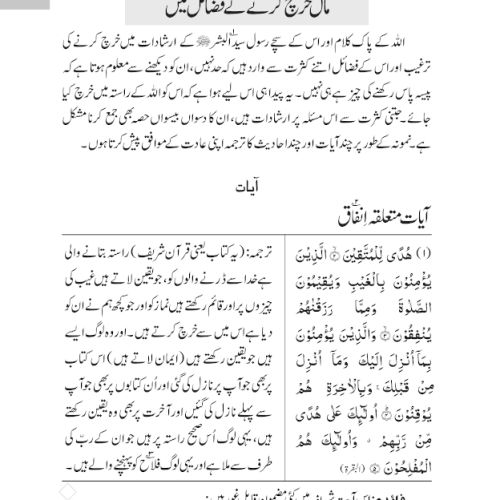 مال خرچ کرنے کے فضائل میں
اللہ کے پاک کلام اور اس کے سچے رسول سید البشر ﷺ کے ارشادات میں خرچ کرنے کی
ترغیب اور اس کے فضائل اتنے کثرت سے وارد ہیں کہ حد نہیں، ان کو دیکھنے سے معلوم ہوتا ہے کہ
پیسہ پاس رکھنے کی چیز ہے ہی نہیں۔ یہ پیدا ہی اس لیے ہوا ہے کہ اس کو اللہ کے راستہ میں خرچ کیا
جائے۔ جتنی کثرت سے اس مسئلہ پر ارشادات ہیں، ان کا دسواں بیسواں حصہ بھی جمع کرنا مشکل
ہے۔ نمونہ کے طور پر چند آیات اور چند احادیث کا ترجمہ اپنی عادت کے موافق پیش کرتا ہوں۔
آیات
آیات متعلقہ اِنفاق
(۱) هُدًى لِّلْمُتَّقِيْنَ ۙ الَّذِيْنَ
يُؤْمِنُوْنَ بِالْغَيْبِ وَيُقِيْمُوْنَ
الصَّلٰوةَ وَمِمَّا رَزَقْنٰهُمْ
يُنْفِقُوْنَ ۙ وَالَّذِيْنَ يُؤْمِنُوْنَ
بِمَآ اُنْزِلَ اِلَيْكَ وَمَآ اُنْزِلَ
مِنْ قَبْلِكَ ۚ وَبِالْاٰخِرَةِ هُمْ
يُوْقِنُوْنَ ۙ اُولٰٓئِكَ عَلٰى هُدًى
مِّنْ رَّبِّهِمْ ۗ وَاُولٰٓئِكَ هُمُ
الْمُفْلِحُوْنَ ۵ (البقرۃ)
ترجمہ: (یہ کتاب یعنی قرآن شریف) راستہ بتانے والی
ہے خدا سے ڈرنے والوں کو، جو یقین لاتے ہیں غیب کی
چیزوں پر اور قائم رکھتے ہیں نماز کو اور جو کچھ ہم نے ان کو
دیا ہے اس میں سے خرچ کرتے ہیں۔ اور وہ لوگ ایسے
ہیں جو یقین رکھتے ہیں (ایمان لاتے ہیں) اس کتاب
پر بھی جو آپ پر نازل کی گئی اور اُن کتابوں پر بھی جو آپ
سے پہلے نازل کی گئیں اور آخرت پر بھی وہ یقین رکھتے
ہیں، یہی لوگ اُس صحیح راستہ پر ہیں جو ان کے ربّ کی
طرف سے ملا ہے اور یہی لوگ فلاح کو پہنچنے والے ہیں۔